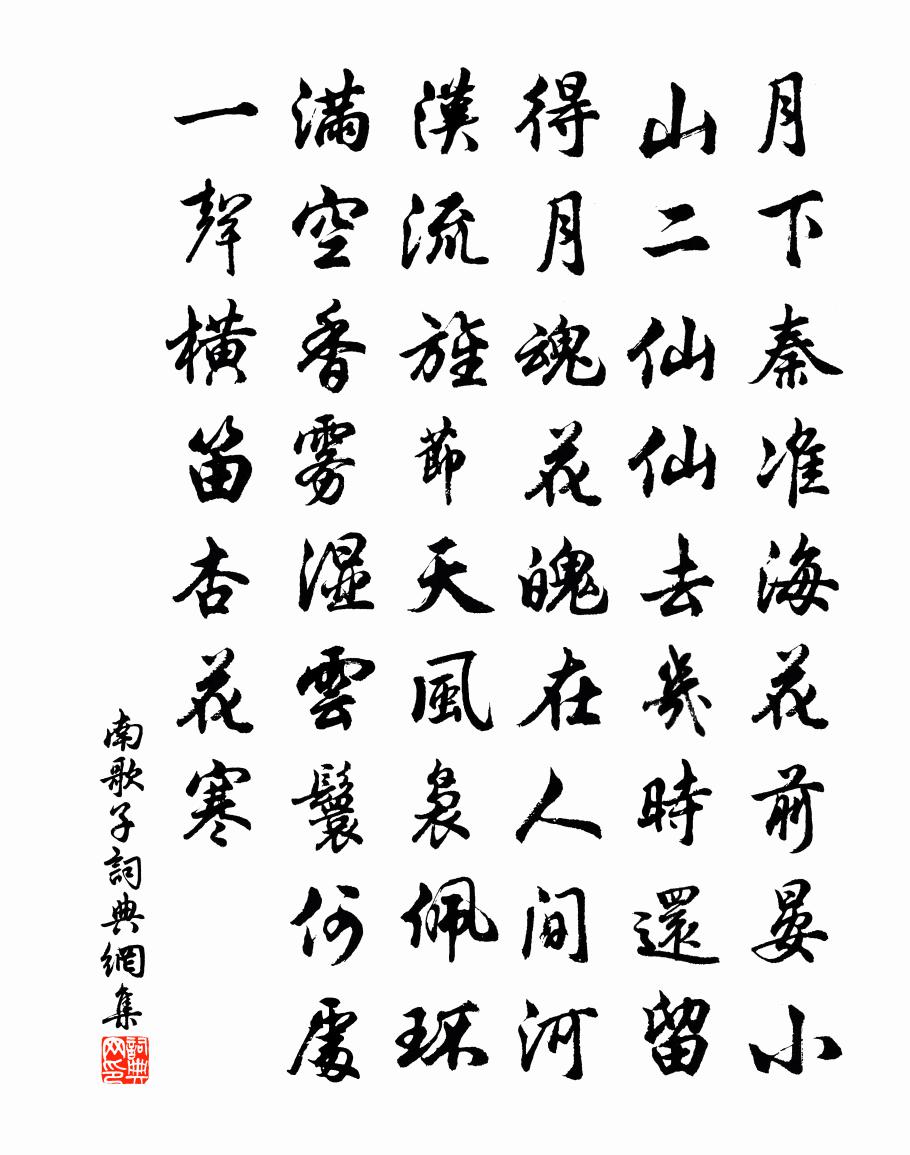 月下秦淮海花前晏小
山二仙仙去幾時還留
得月魂花魄在人間河
漢流旌節天風裊佩环
滿空香霧湿雲鬟何處
一聲橫笛杏花寒
南歌子詞典網集
詞典网印